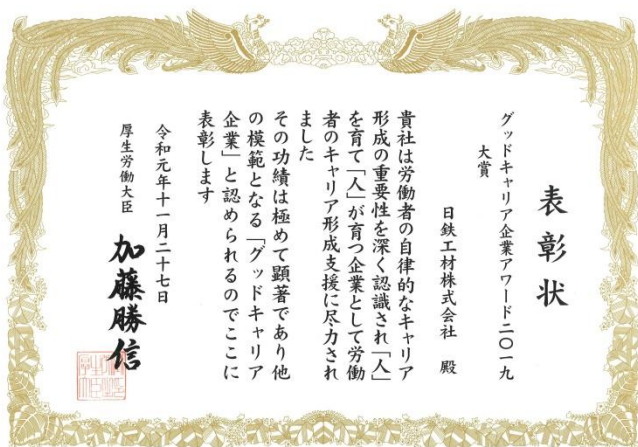 表彰状
グッドキャリア企業アワード二〇一九
大賞
日鉄工材株式会社 殿
貴社は労働者の自律的なキャリア
形成の重要性を深く認識され「人」
を育て「人」が育つ企業として労働
者のキャリア形成支援に尽力され
ました
その功績は極めて顕著であり他
の模範となる「グッドキャリア
企業」と認められるのでここに
表彰します
令和元年十一月二十七日
厚生労働大臣 加藤勝信